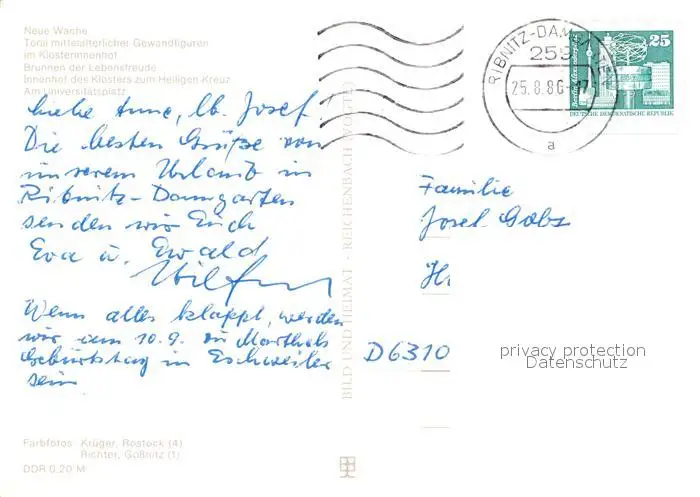 Neue Wache
Torsi mittelalterlicher Gewandfiguren
im Klosterinnenhof
Brunnen der Lebensfreude
Innenhof des Klosters zum Heiligen Kreuz
Am Universitätsplatz
Liebe Anne, lb. Josef!
Die besten Grüße von
unserem Urlaub in
Ribnitz-Damgarten
senden wir Euch
Eva u. Ewald
Wenn alles klappt, werden
wir am 10.9. zu Marthels
Geburtstag in Eschweiler
sein
Farbfotos Krüger, Rostock (4)
Richter, Gößnitz (1)
DDR 0,20 M
BILD UND HEIMAT · REICHENBACH (VOGTL)
RIBNITZ-DAMGARTEN
259
25.8.86
a
25
DEUTSCHE DEMOKRATISCHE REPUBLIK
Familie
Josef Gobs
D6310
privacy protection
Datenschutz